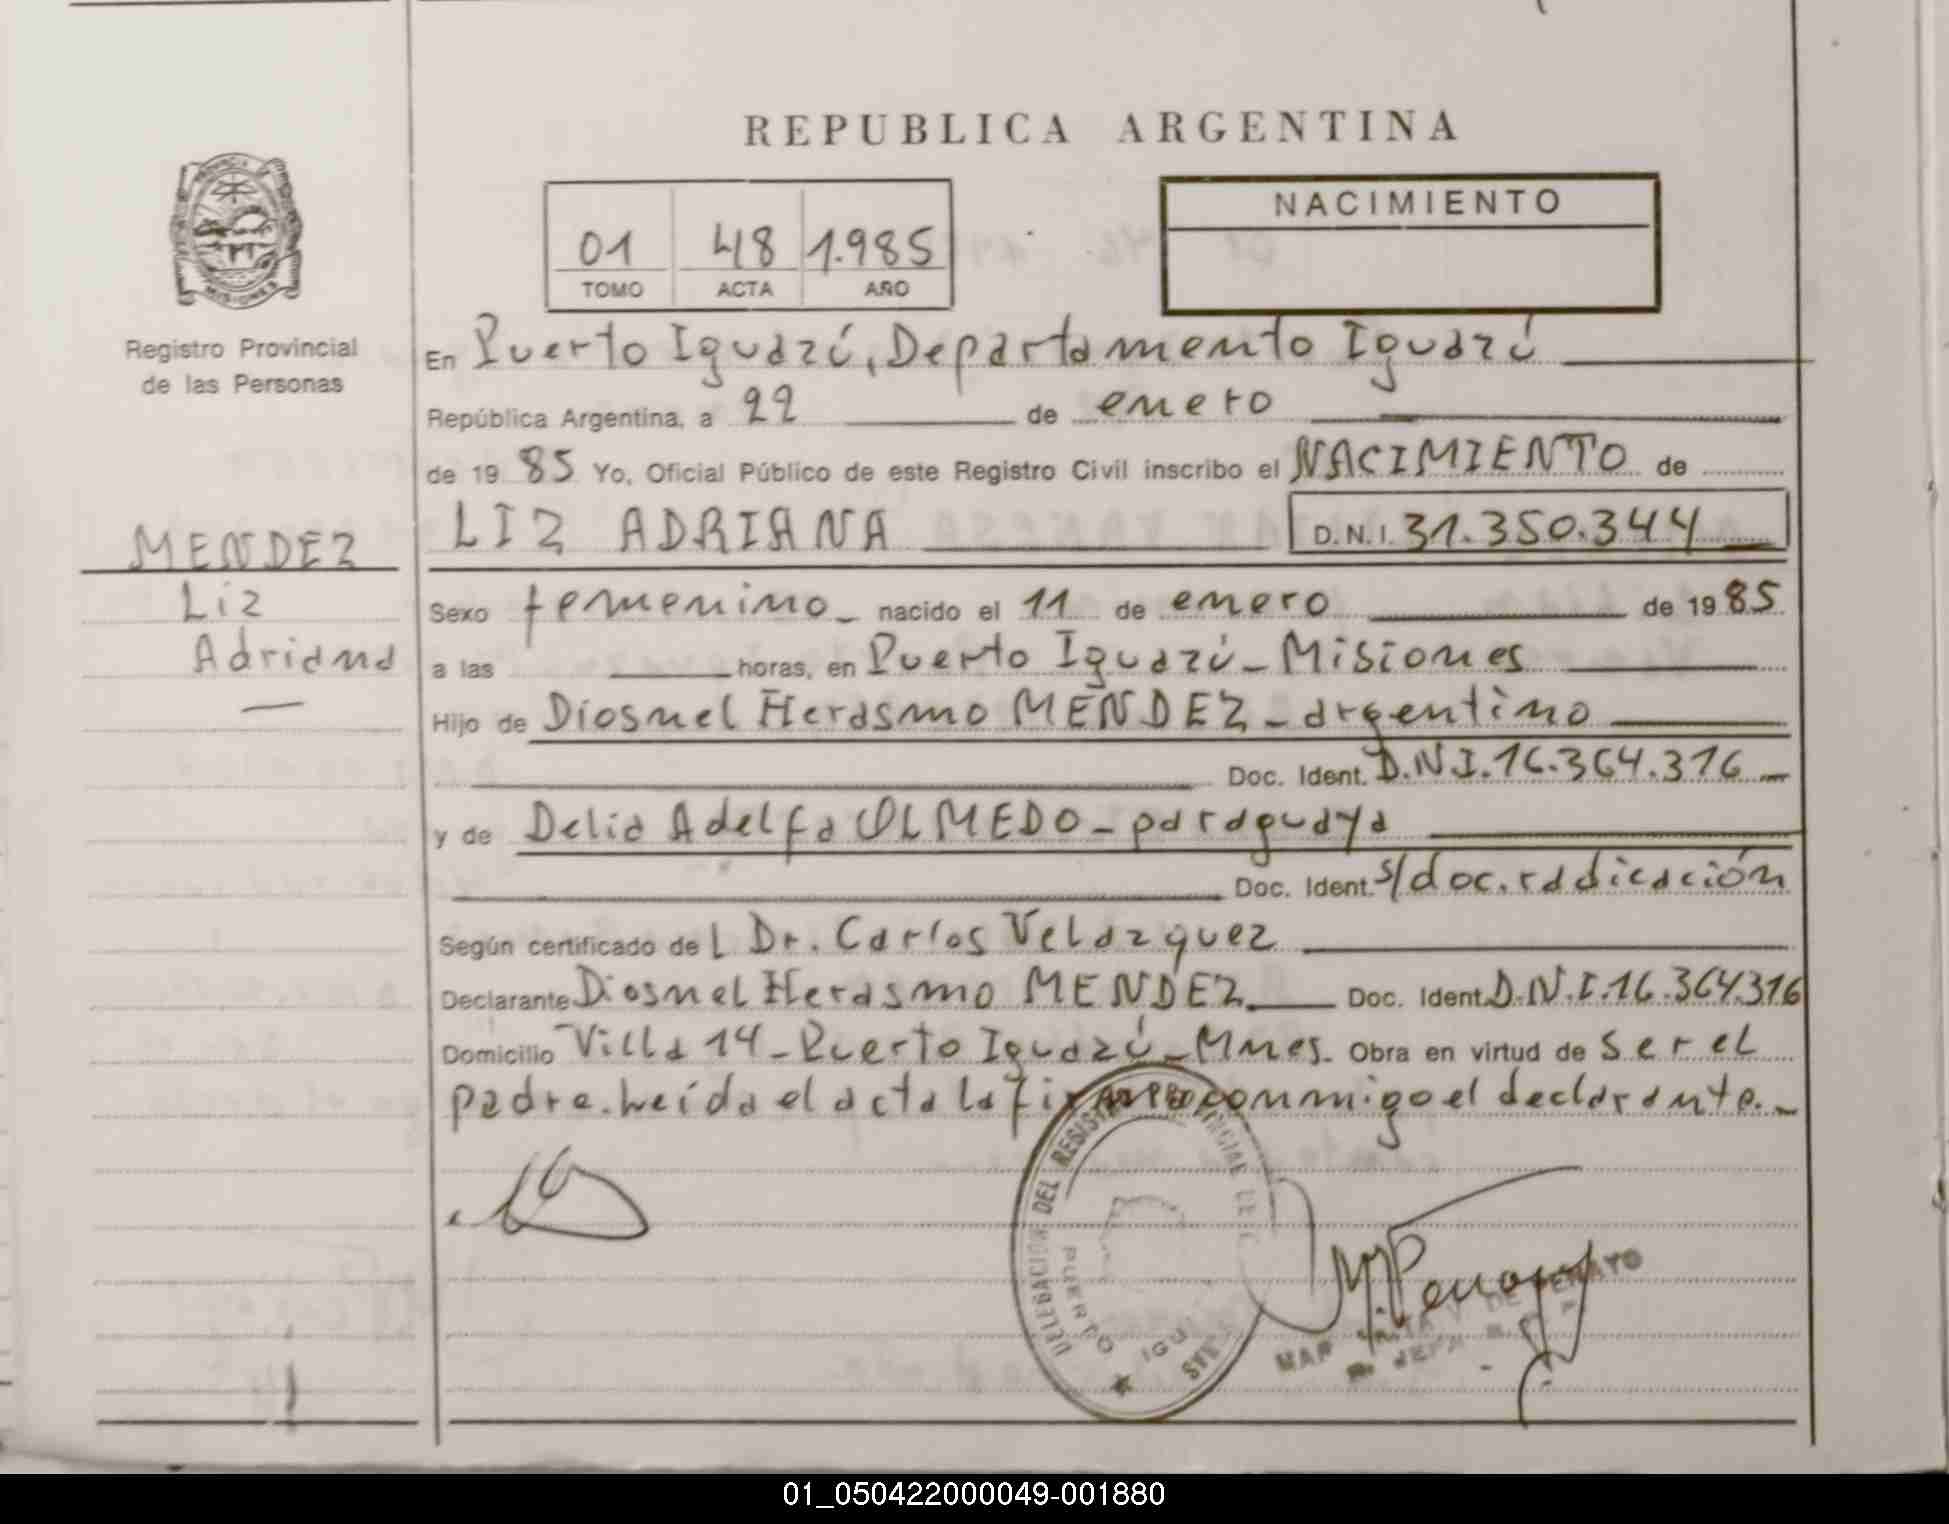 REPUBLICA ARGENTINA
PROVINCIA
MISIONES
Registro Provincial
de las Personas
01 48 1.985
TOMO ACTA AÑO
NACIMIENTO
En Puerto Iguazú, Departamento Iguazú
República Argentina, a 22 de enero
de 19 85 Yo, Oficial Público de este Registro Civil inscribo el NACIMIENTO de
LIZ ADRIANA D.N.I. 31.350.344
MENDEZ
Liz
Adriana
Sexo femenino nacido el 11 de enero de 19 85
a las horas, en Puerto Iguazú - Misiones
Hijo de Diosnel Herasmo MENDEZ - argentino
Doc. Ident. D.N.I. 16.364.316
y de Delia Adelfa OLMEDO - paraguaya
Doc. Ident. s/doc. radicación
Según certificado de l Dr. Carlos Velazquez
Declarante Diosnel Herasmo MENDEZ Doc. Ident. D.N.I. 16.364.316
Domicilio Villa 14 - Puerto Iguazú - Mnes. Obra en virtud de ser el
padre. Leída el acta la firma conmigo el declarante. -
DELEGACION DEL REGISTRO PROVINCIAL DE
PUERTO
01_050422000049-001880